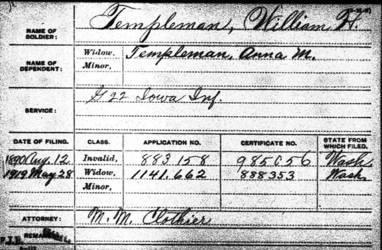 NAME OF SOLDIER: Templeman, William H.
NAME OF DEPENDENT: Widow, Templeman, Anna M.
Minor,
SERVICE: G 22 Iowa Inf.
DATE OF FILING. CLASS. APPLICATION NO. CERTIFICATE NO. STATE FROM WHICH FILED.
1890 Aug. 12 Invalid, 883.158 985656 Wash
1919 May 28 Widow, 1141.662 888353 Wash.
Minor,
ATTORNEY: M. M. Clothier